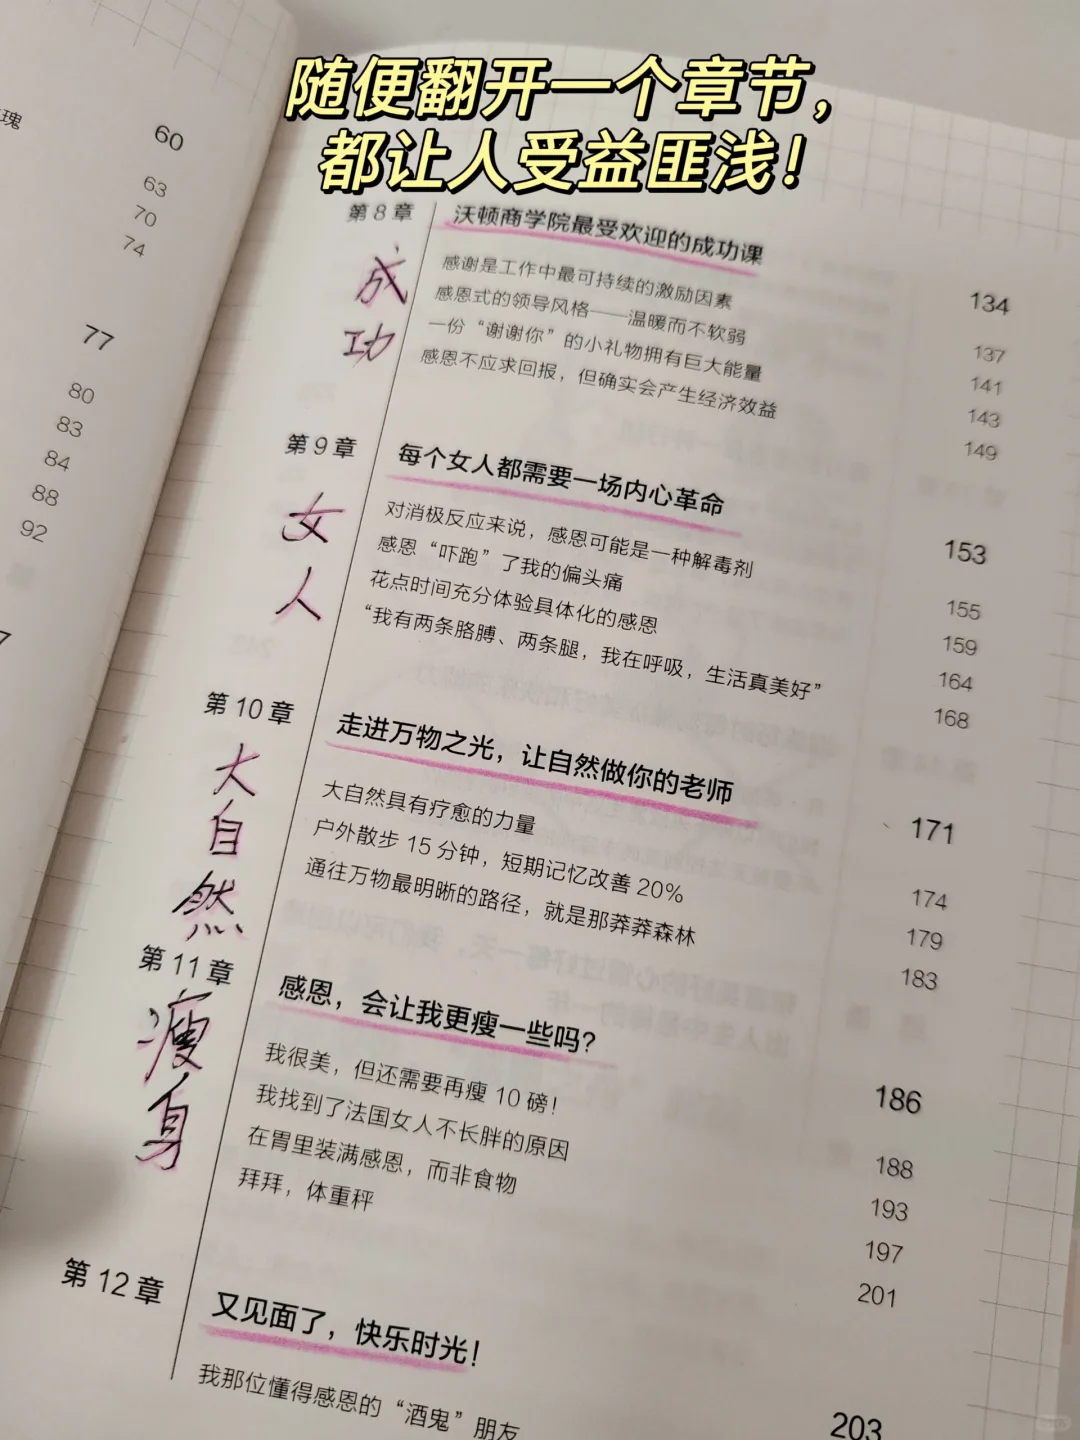 随便翻开一个章节，
都让人受益匪浅！
瑰
60
63
70
74
77
80
83
84
88
92
7
第8章 沃顿商学院最受欢迎的成功课 134
成功
感谢是工作中最可持续的激励因素 137
感恩式的领导风格——温暖而不软弱 141
一份“谢谢你”的小礼物拥有巨大能量 143
感恩不应求回报，但确实会产生经济效益 149
第9章 每个女人都需要一场内心革命 153
女人
对消极反应来说，感恩可能是一种解毒剂 155
感恩“吓跑”了我的偏头痛 159
花点时间充分体验具体化的感恩 164
“我有两条胳膊、两条腿，我在呼吸，生活真美好” 168
第10章 走进万物之光，让自然做你的老师 171
大自然
大自然具有疗愈的力量 174
户外散步15分钟，短期记忆改善20% 179
通往万物最明晰的路径，就是那莽莽森林 183
第11章 感恩，会让我更瘦一些吗？ 186
瘦身
我很美，但还需要再瘦10磅！ 188
我找到了法国女人不长胖的原因 193
在胃里装满感恩，而非食物 197
拜拜，体重秤 201
第12章 又见面了，快乐时光！ 203
我那位懂得感恩的“酒鬼”朋友